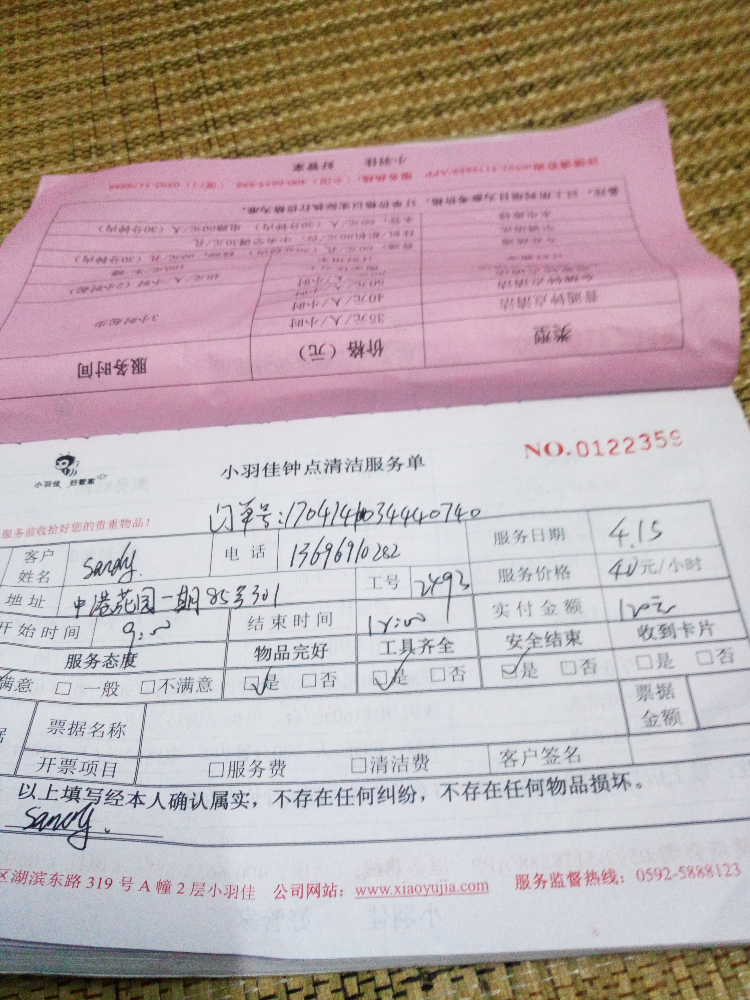 小羽佳 好管家
备注:以上所列项目为参考价格,订单价格以实际执行价格为准。
40元/人/小时
3小时起步
35元/人/小时
普通钟点清洁
类型
价格(元)
服务时间
NO.0122359
小羽佳 好管家
小羽佳钟点清洁服务单
服务前收拾好您的贵重物品!
订单号:17041410034440740
客户姓名 Sandy. 电话 13696910282 服务日期 4.15
地址 中港花园一期85号301 工号 2493 服务价格 40元/小时
开始时间 9:00 结束时间 12:00 实付金额 120元
服务态度 物品完好 工具齐全 安全结束 收到卡片
满意 □ 一般 □不满意 ☑是 □否 ☑是 □否 ☑是 □否 □是 □否
票据名称 票据金额
开票项目 □服务费 □清洁费 客户签名
以上填写经本人确认属实,不存在任何纠纷,不存在任何物品损坏。
Sandy.
区湖滨东路 319 号 A 幢 2 层小羽佳 公司网站:www.xiaoyujia.com 服务监督热线:0592-5888123